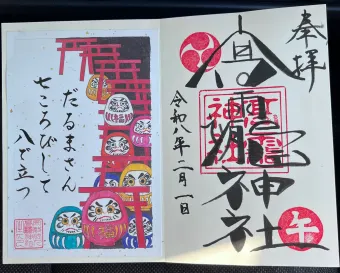 奉拝
神社
令和八年二月一日
午
だるまさん
七ころびして
八で立つ